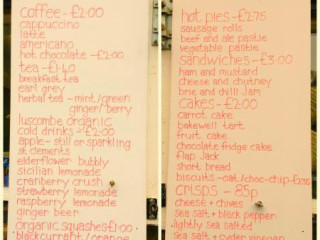 coffee - £2.00
cappuccino
latte
americano
hot chocolate - £2.00
tea - £1.40
breakfast tea
earl grey
herbal tea - mint/green
ginger/berry
luscombe organic
cold drinks - £2.00
apple - still or sparkling
st clements
elderflower bubbly
sicilian lemonade
cranberry crush
strawberry lemonade
raspberry lemonade
ginger beer
organic squashes £1.00
blackcurrant/orange
hot pies - £2.75
sausage rolls
beef and ale pastie
vegetable pastie
sandwiches - £3.00
ham and mustard
cheese and chutney
brie and chilli jam
cakes - £2.00
carrot cake
bakewell tart
fruit cake
chocolate fridge cake
flap jack
short bread
biscuits - oat/choc-chip
crisps - 85p
cheese + chives
sea salt + black pepper
lightly sea salted
sea salt + cyder vinegar